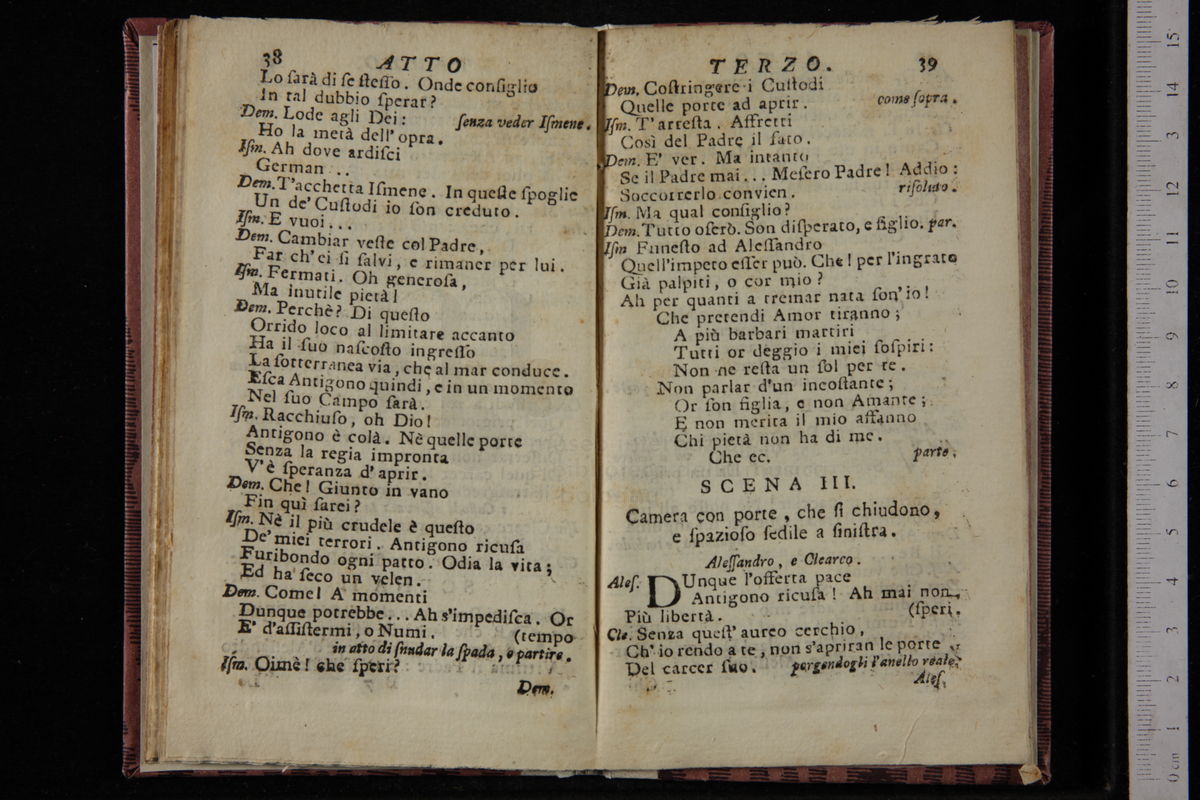 38 ATTO
Lo sarà di se stesso. Onde consiglio
In tal dubbio sperar?
Dem. Lode agli Dei: senza veder Ismene.
Ho la metà dell'opra.
Ism. Ah dove ardisci
German ..
Dem. T'acchetta Ismene. In queste spoglie
Un de' Custodi io son creduto.
Ism. E vuoi...
Dem. Cambiar veste col Padre,
Far ch'ei si salvi, e rimaner per lui.
Ism. Fermati. Oh generosa,
Ma inutile pietà!
Dem. Perchè? Di questo
Orrido loco al limitare accanto
Ha il suo nascosto ingresso
La sotterranea via, che al mar conduce.
Esca Antigono quindi, e in un momento
Nel suo Campo sarà.
Ism. Racchiuso, oh Dio!
Antigono è colà. Nè quelle porte
Senza la regia impronta
V'è speranza d'aprir.
Dem. Che! Giunto in vano
Fin quì sarei?
Ism. Nè il più crudele è questo
De' miei terrori. Antigono ricusa
Furibondo ogni patto. Odia la vita;
Ed ha seco un velen.
Dem. Come! A momenti
Dunque potrebbe... Ah s'impedisca. Or
E' d'assistermi, o Numi. (tempo
in atto di snudar la spada, e partire.
Ism. Oimè! che speri?
Dem.
TERZO. 39
Dem. Costringere i Custodi
Quelle porte ad aprir. come sopra.
Ism. T'arresta. Affretti
Così del Padre il fato.
Dem. E' ver. Ma intanto
Se il Padre mai... Mesero Padre! Addio:
Soccorrerlo convien. risoluto.
Ism. Ma qual consiglio?
Dem. Tutto oserò. Son disperato, e figlio. par.
Ism Funesto ad Alessandro
Quell'impeto esser può. Che! per l'ingrato
Già palpiti, o cor mio?
Ah per quanti a tremar nata son'io!
Che pretendi Amor tiranno;
A più barbari martiri
Tutti or deggio i miei sospiri:
Non ne resta un sol per te.
Non parlar d'un incostante;
Or son figlia, e non Amante;
E non merita il mio affanno
Chi pietà non ha di me.
Che ec. parte.
SCENA III.
Camera con porte, che si chiudono,
e spazioso sedile a sinistra.
Alessandro, e Clearco.
Ales. DUnque l'offerta pace
Antigono ricusa! Ah mai non,
Più libertà. (speri.
Cle. Senza quest' aureo cerchio,
Ch'io rendo a te, non s'apriran le porte
Del carcer suo. porgendogli l'anello reale.
Ales.